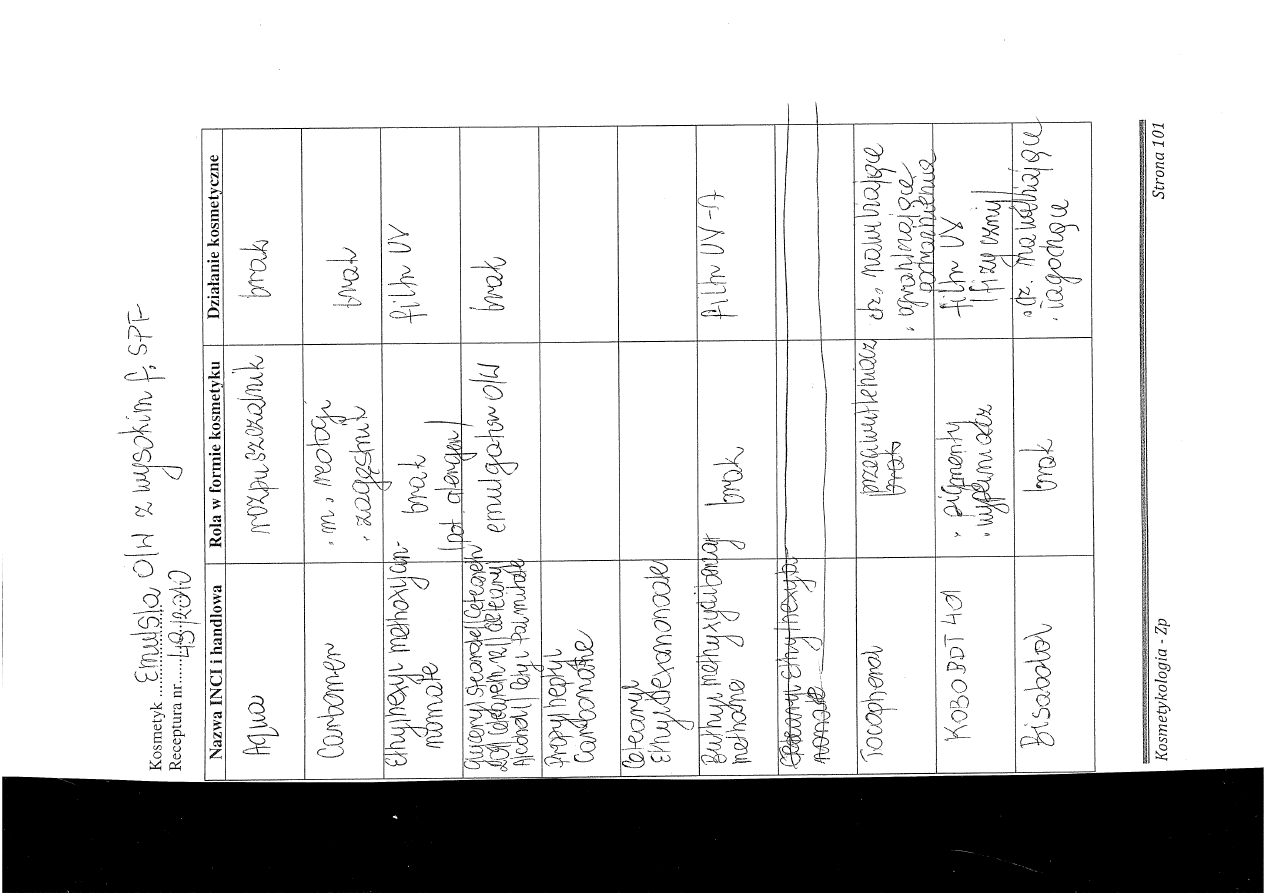 Kosmetyk ........ Emulsja O/W z wysokim f. SPF
Receptura nr...... 49/2010
Nazwa INCI i handlowa
Rola w formie kosmetyku
Działanie kosmetyczne
Aqua
rozpuszczalnik
brak
Carbomer
• m. reologi
• zagęstnik
brak
Ethylhexyl methoxycin-
namate
brak
(pot. alergen)
filtr UV
Glyceryl stearate/Ceteareth
20/Ceteareth 12/Cetearyl
Alcohol/Cetyl Palmitate
emulgator O/W
brak
Propylheptyl
Carbonate
Cetearyl
Ethylhexanonoate
Buthyl methyxydibenzoy
methane
brak
filtr UV-A
Cetearyl Ethylhexyno-
nonate
Tocopherol
przeciwutleniacz
brak
dz. nawilżające
• ograniczające
podrażnienia
KOBO BDT 401
• pigmenty
• wypełniacz
filtr UV
(fizyczny)
Bisabolol
brak
• dz. nawilżające
• łagodzące
Kosmetykologia - Zp
Strona 101